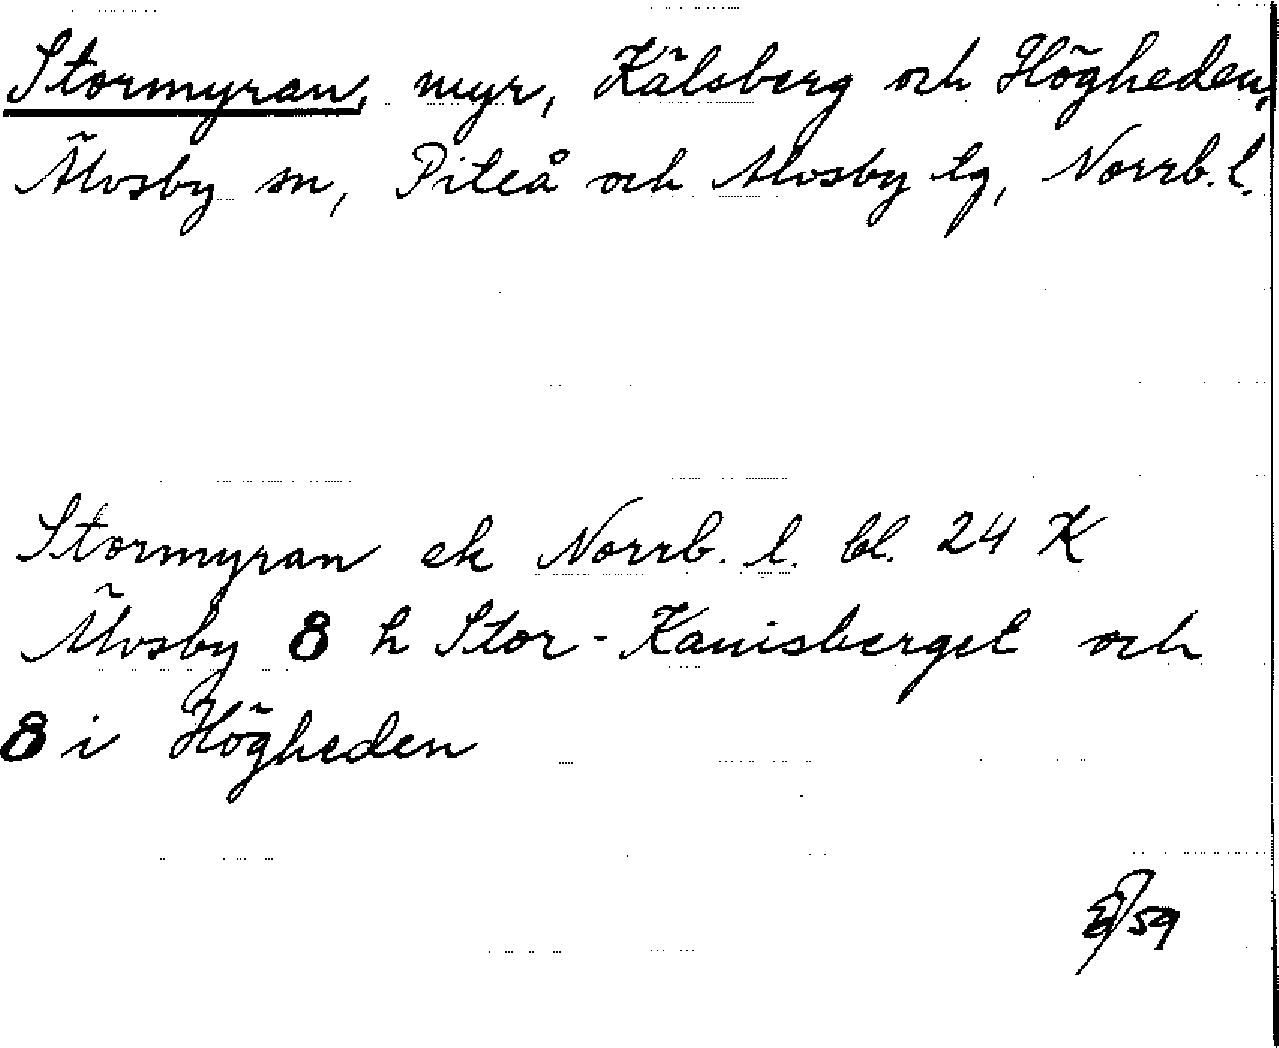 Stormyran, myr, Kälsberg och Högheden,
Älvsby sn, Piteå och Älvsby tg, Norrb. l.
Stormyran ek Norrb. l. bl. 24 K
Älvsby 8 h Stor-Kanisberget och
8 i Högheden
59